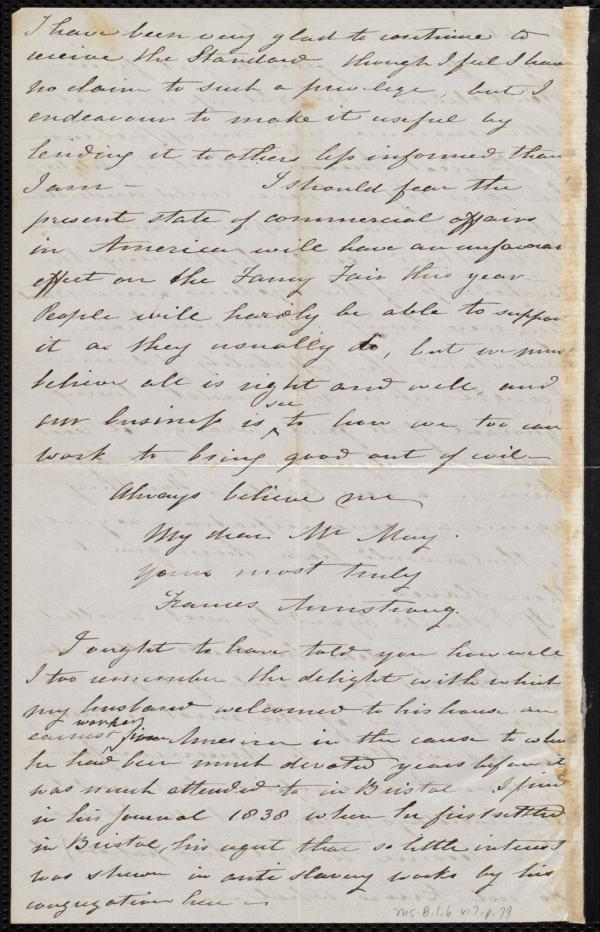 I have been very glad to continue to
receive the Standard though I feel I have
no claim to such a privilege, but I
endeavour to make it useful by
lending it to others less informed than
I am – I should fear the
present state of commercial affairs
in America will have an unfavora
effect on the Fancy Fair this year –
People will hardly be able to suppor
it as they usually do, but we must
believe all is right and well, and
our business is see to how we too can
work to bring good out of evil –
Always believe me
My dear Mr May.
Yours most truly
Frances Armstrong.
I ought to have told you how well
I too remember the delight with which
my husband welcomed to his house an
earnest worker from America in the cause to which
he had been much devoted years before it
was much attended to in Bristol I find
in his Journal 1838 when he first settled
in Bristol, his regret that so little interest
was shewn in anti slavery works by his
congregation here –
Ms.B.1.6 v.7, p.79